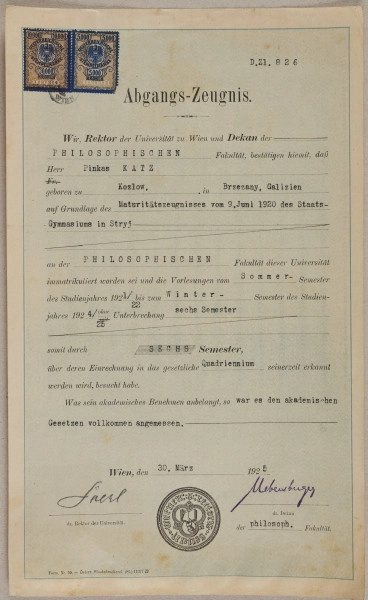 D.Zl. 826
Abgangs-Zeugnis.
Wir, Rektor der Universität zu Wien und Dekan der
PHILOSOPHISCHEN Fakultät, bestätigen hiemit, daß
Herr Pinkas KATZ
Frl.
geboren zu Kozlow, in Brzezany, Galizien
auf Grundlage des Maturitätszeugnisses vom 9. Juni 1920 des Staats-
Gymnasiums in Stryj
an der PHILOSOPHISCHEN Fakultät dieser Universität
immatrikuliert worden sei und die Vorlesungen vom Sommer- Semester
des Studienjahres 1921/22 bis zum Winter- Semester des Studien-
jahres 1924/25 ohne Unterbrechung sechs Semester
somit durch SECHS Semester,
über deren Einrechnung in das gesetzliche Quadriennium seinerzeit erkannt
werden wird, besucht habe.
Was sein akademisches Benehmen anbelangt, so war es den akademischen
Gesetzen vollkommen angemessen.
Wien, den 30. März 1925
dz. Rektor der Universität.
dz. Dekan
der philosoph. Fakultät.